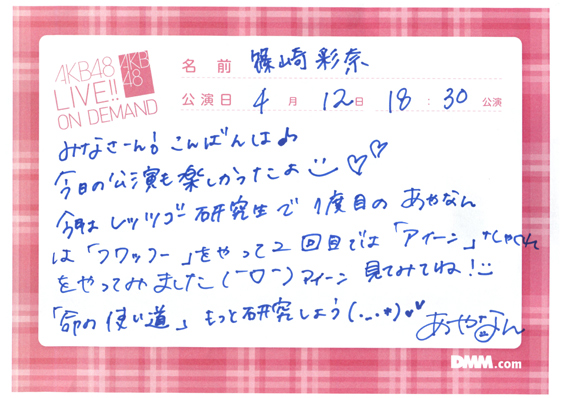 AKB48
LIVE!!
ON DEMAND
AKB
48
名前 篠崎彩奈
公演日 4月 12日 18:30 公演
みなさーん! こんばんは♪
今日の公演も楽しかったよ
今日は レッツゴー研究生で 1度目の あやなん
は「フワッフー」をやって2回目では「アイーン」
をやってみました(￣▽￣)アイーン 見てみてね!
「命の使い道」もっと研究しよう(._.*)♥♥
あやなん
DMM.com